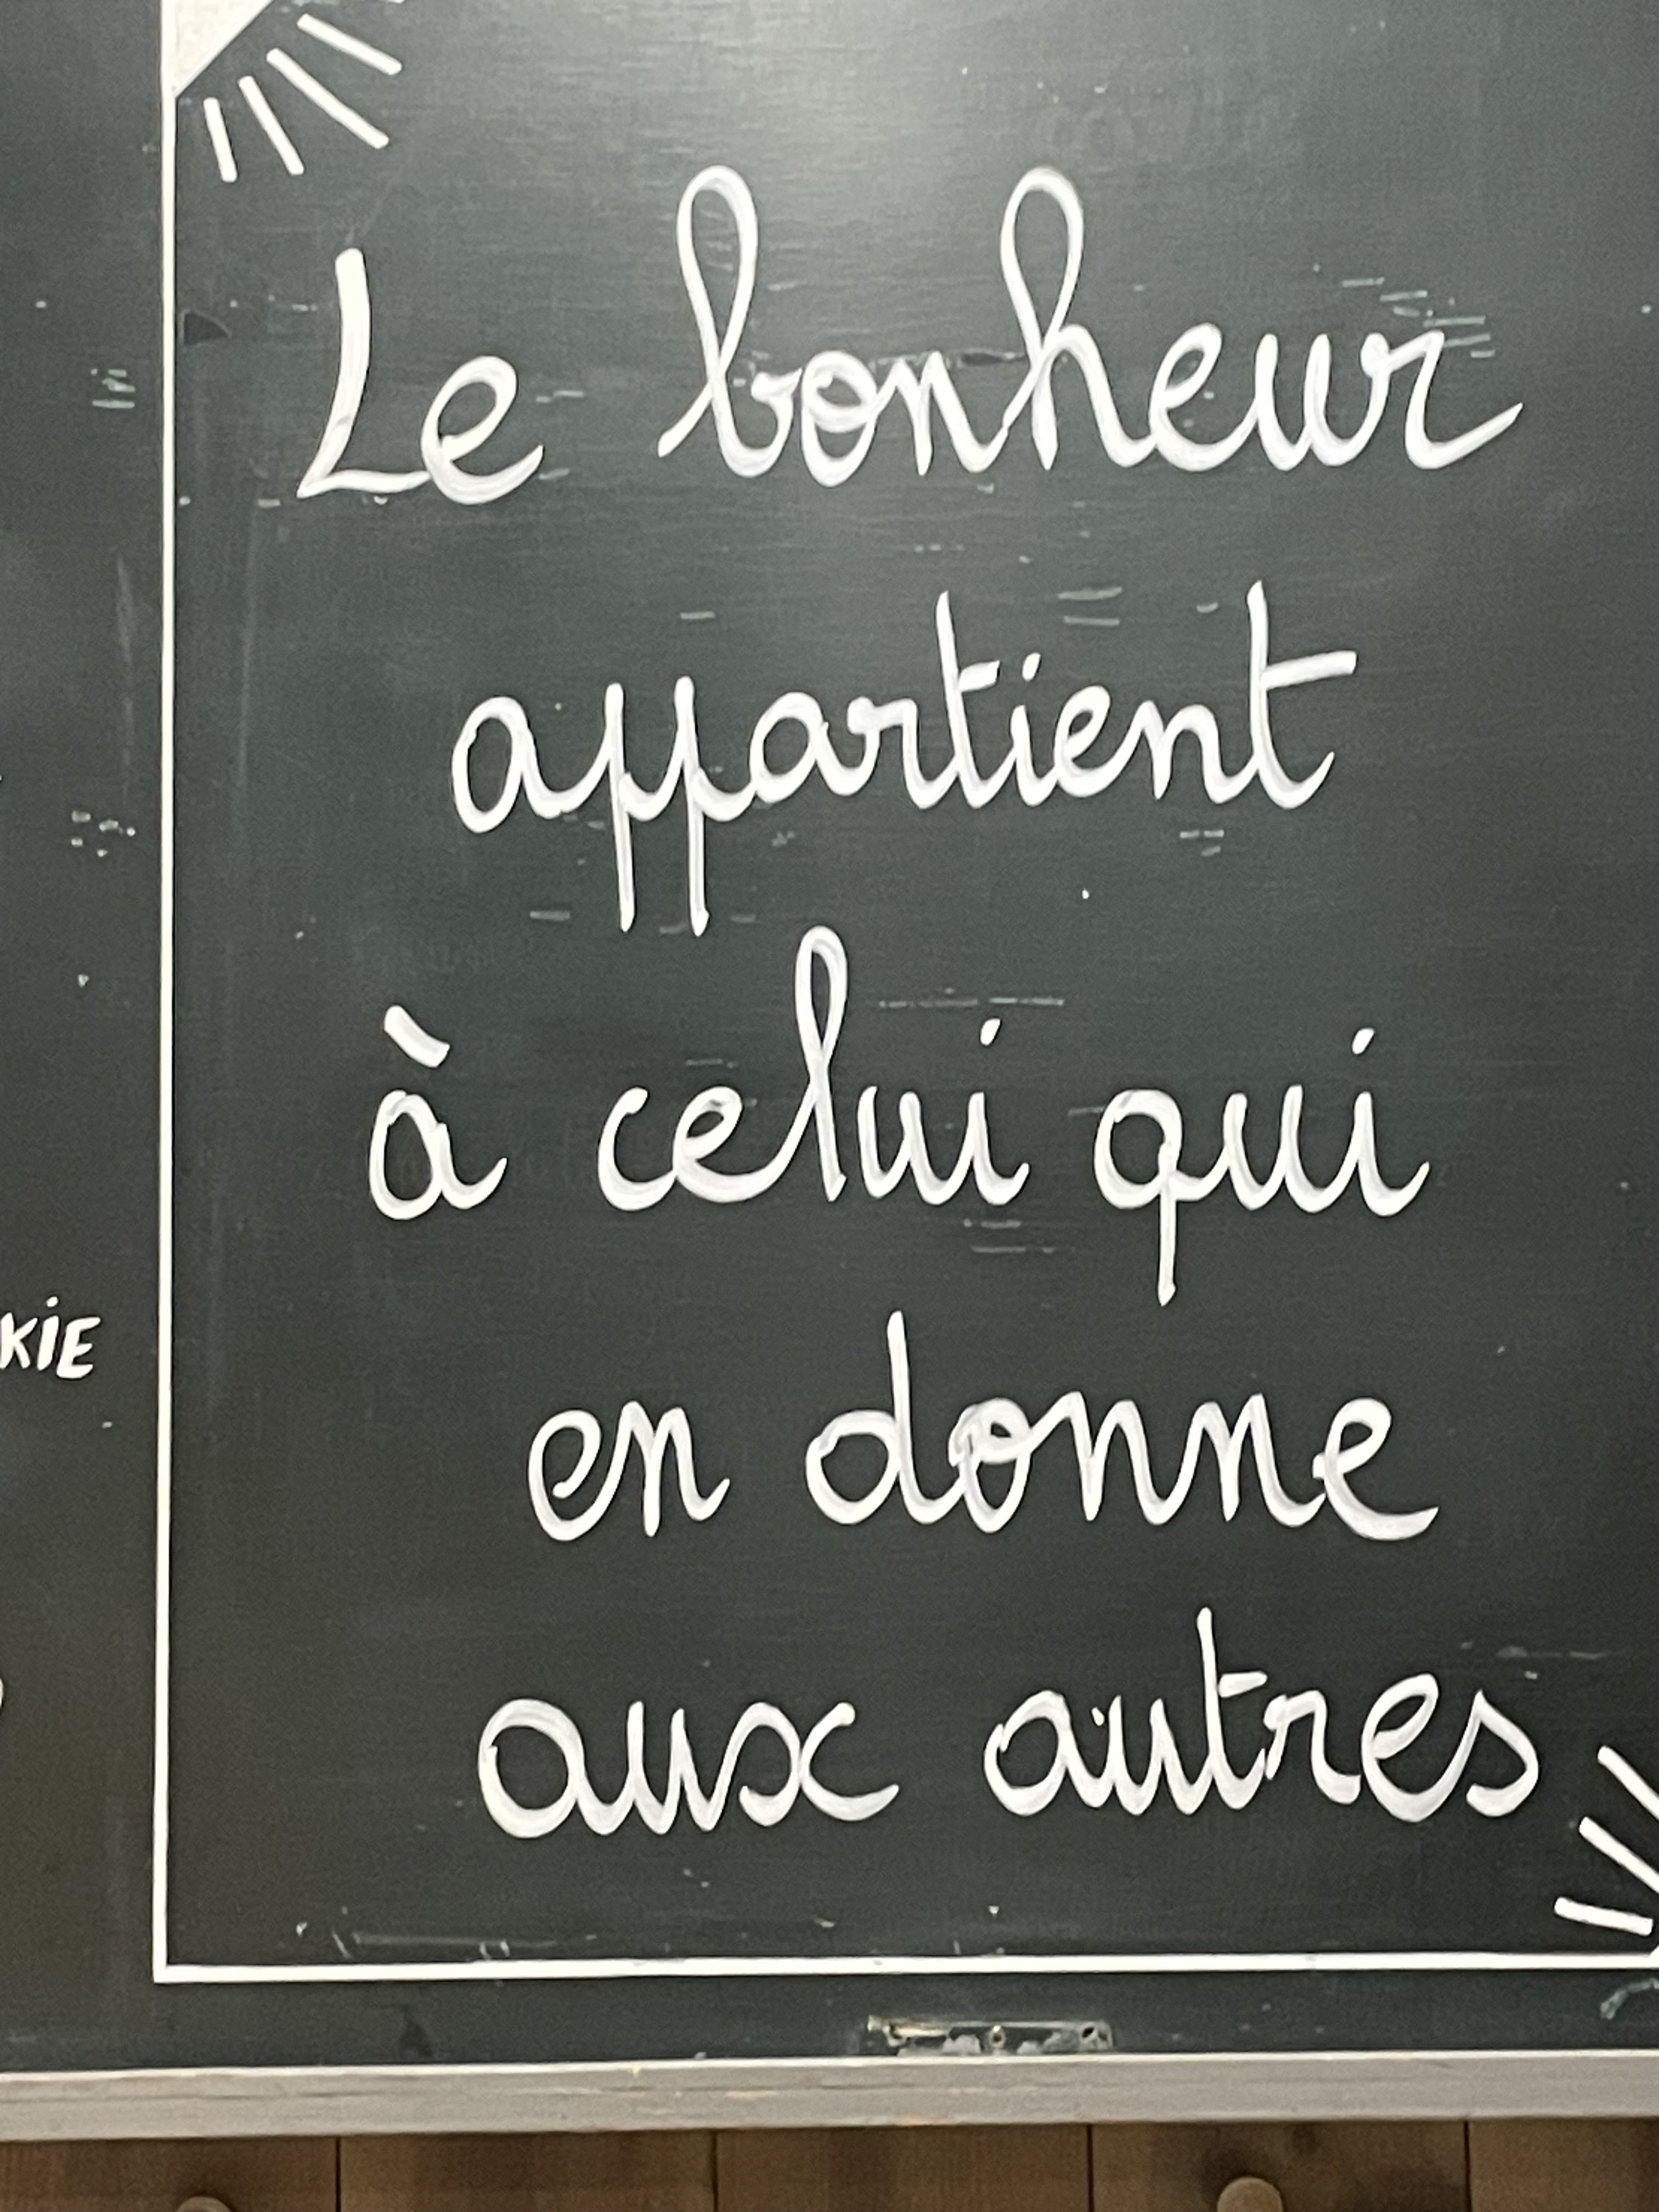 Le bonheur
appartient
à celui qui
en donne
aux autres
KiE